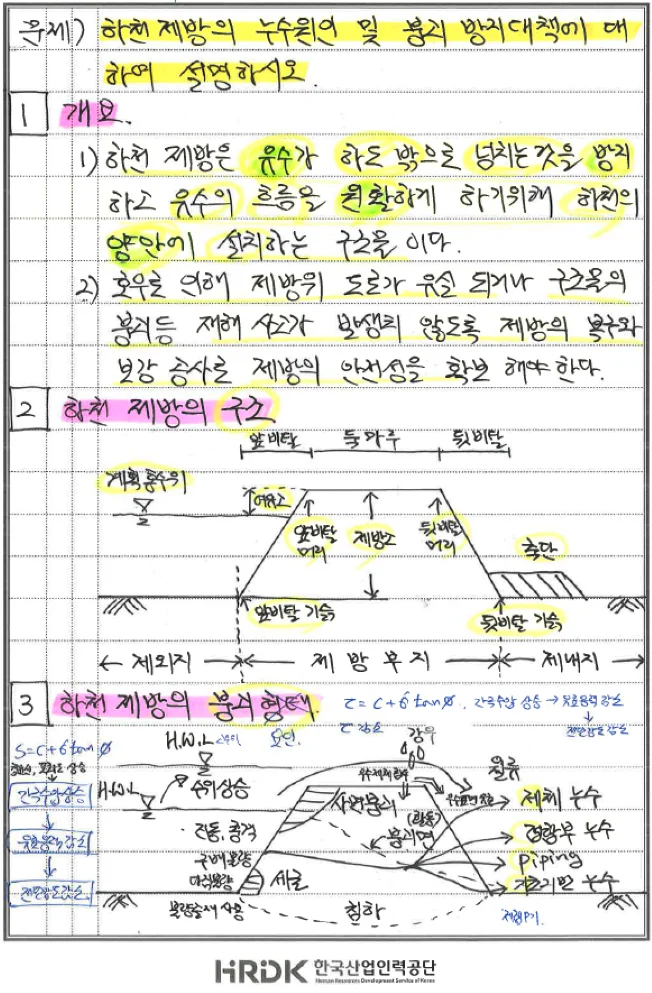 문제) 하천 제방의 누수원인 및 붕괴 방지대책에 대
하여 설명하시오.
1 개요.
1) 하천 제방은 유수가 하도 밖으로 넘치는것을 방지
하고 유수의 흐름을 원활하게 하기위해 하천의
양안에 설치하는 구조물 이다.
2) 호우로 인해 제방위 도로가 유실 되거나 구조물의
붕괴등 재해 사고가 발생치 않도록 제방의 복구와
보강 공사로 제방의 안전성을 확보 해야 한다.
2 하천 제방의 구조
앞비탈 둑마루 뒷비탈
계획홍수위
여유고
앞비탈 머리 제방고 뒷비탈 머리
측단
앞비탈 기슭 뒷비탈 기슭
제외지 제방부지 제내지
3 하천 제방의 붕괴 형태.
τ = c + σ tan ø, 간극수압 상승 → 유효응력 감소
전단강도 감소
τ 감소
S = c + σ tan ø
H.W.L 요인. 강우 월류
간극수압상승
H.W.L 수위상승
사면붕괴
제체 누수
유효응력 감소
진동, 충격
(활동)
붕괴면
Piping
다짐불량
지반 누수
전단강도감소.
세굴
불량숱재 사용
침하
HRDK 한국산업인력공단
Human Resources Development Service of Korea